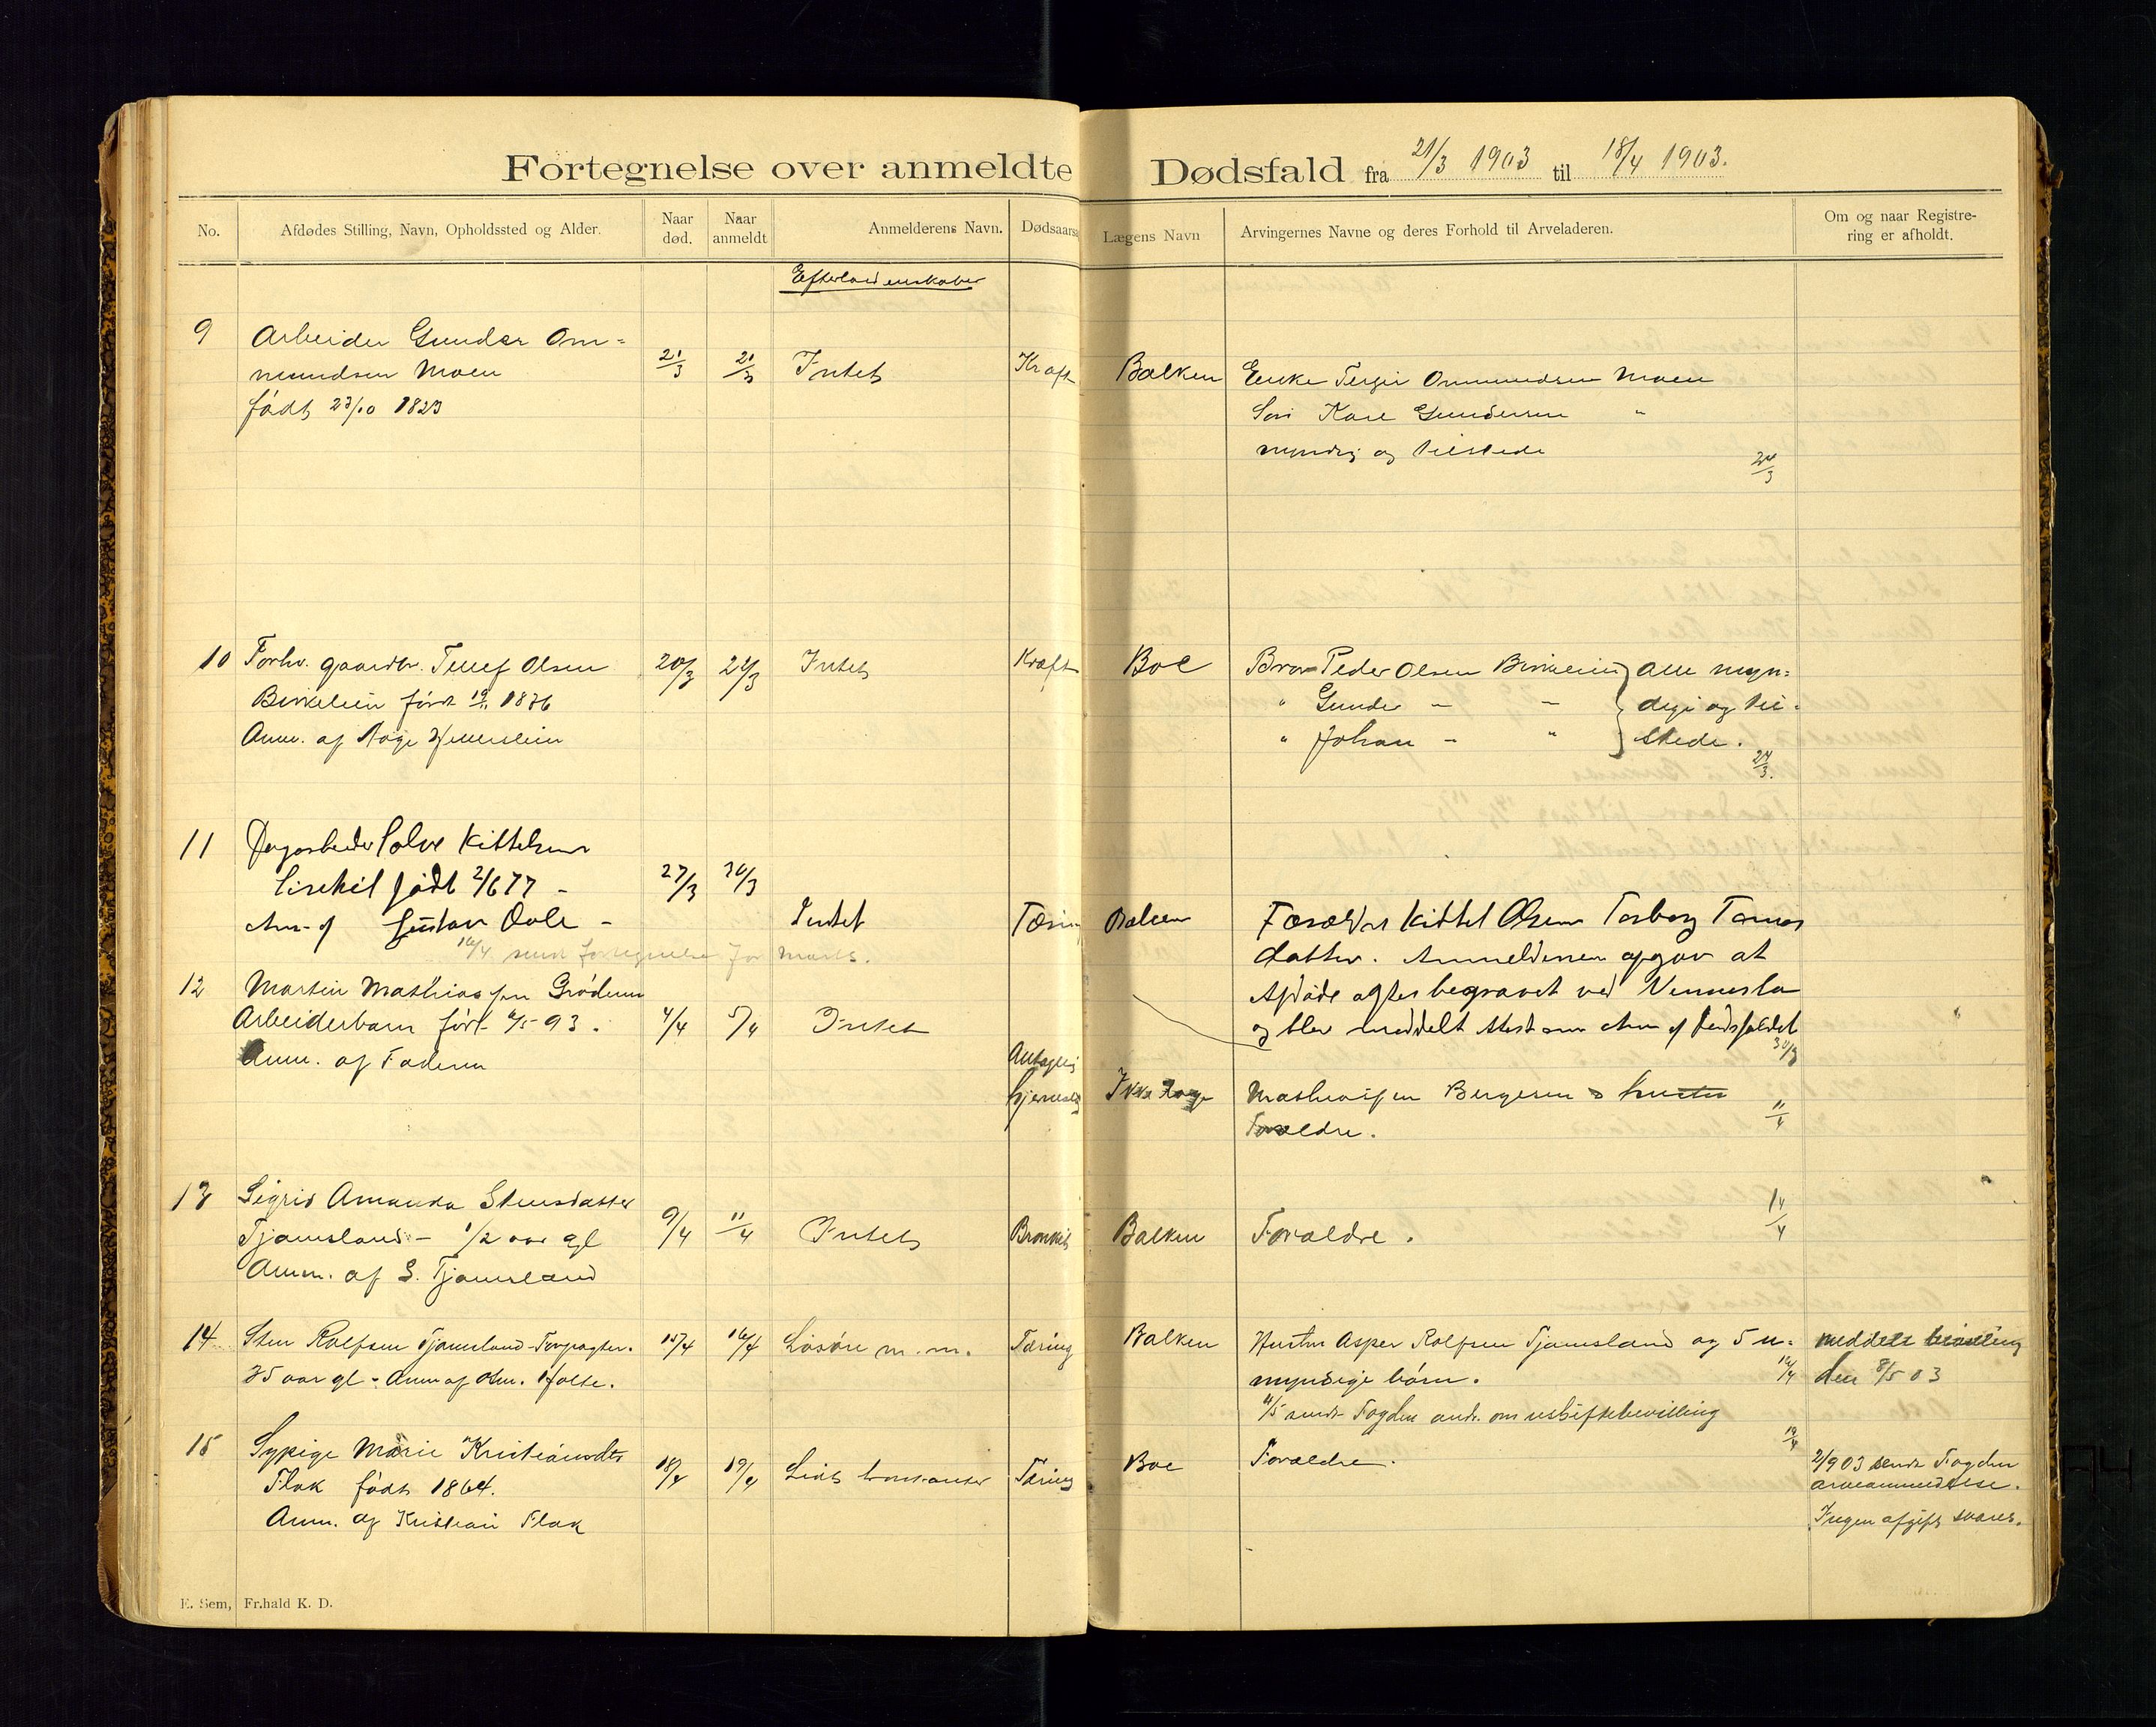 Fortegnelse over anmeldte Dødsfald fra 21/3 1903 til 18/4 1903.
No. Afdødes Stilling, Navn, Opholdssted og Alder. Naar død. Naar anmeldt Anmelderens Navn. Dødsaars Lægens Navn Arvingernes Navne og deres Forhold til Arveladeren. Om og naar Registre-
ring er afholdt.
Efterladenskaber
9 Arbeider Gunder Om=
mundsen Moen 21/3 21/3 Intet Kræft Balken Enke Tergir Ommundsen Moen
født 23/10 1823 Søn Kare Gundersen "
myndig og tilstede
24/3
10 Forhv. gaardbr. Tellef Olsen 20/3 24/3 Intet Kræft Boe Bror Peder Olsen Birkelien } alle myn=
Birkelien født 19/11 1836 " Gunder - - } dige og til=
Anm. af Aage Hellerslien " Johan - " } stede.
24/3.
11 Dagarbeider Salve Kittelsen
født 2/6 77 - 27/3 30/3
Anm. af Gustav Dale - Intet Tæring Balken Forældre Kittel Olsen Torborg Tomas
16/4 sendt fortegnelse for Marts. datter. Anmelderen opgav at
Afdøde agtes begravet ved Vennesla
og blev meddelt Attest om Anm af Dødsfaldet
30/3
12 Martin Mathiassen Grødum
Arbeiderbarn født 6/5 93. 4/4 5/4 Intet
Anm. af Faderen
Antagelig
hjernes Ikke Læge Mathiassen Bergesen & hustru
Forældre.
11/4
13 Sigrid Amanda Stensdatter
Tjamsland - 1/2 aar gl 9/4 11/4 Intet Bronkit Balken Forældre.
Anm. af S. Tjamsland
14/4
14 Sten Rolfsen Tjamsland - Forpagter. 15/4 16/4 Løsøre m.m. Tæring Balken Hustru Asper Rolfsen Tjamsland og 5 u= meddelt bevilling
35 aar gl - Anm af Holte. myndige børn. 16/4 den 8/5 03
4/5 sendt Fogden andr. om uskiftebevilling
15 Sypige Marie Kristiansdtr
Flak født 1864. 18/4 19/4 Lidt Tæring Boe Forældre. 19/4 2/9 03 sendt Fogden
arveanmeldelse.
Anm. af Kristian Flak Ingen afgift svares.
E. Sem, Fr.hald K. D.